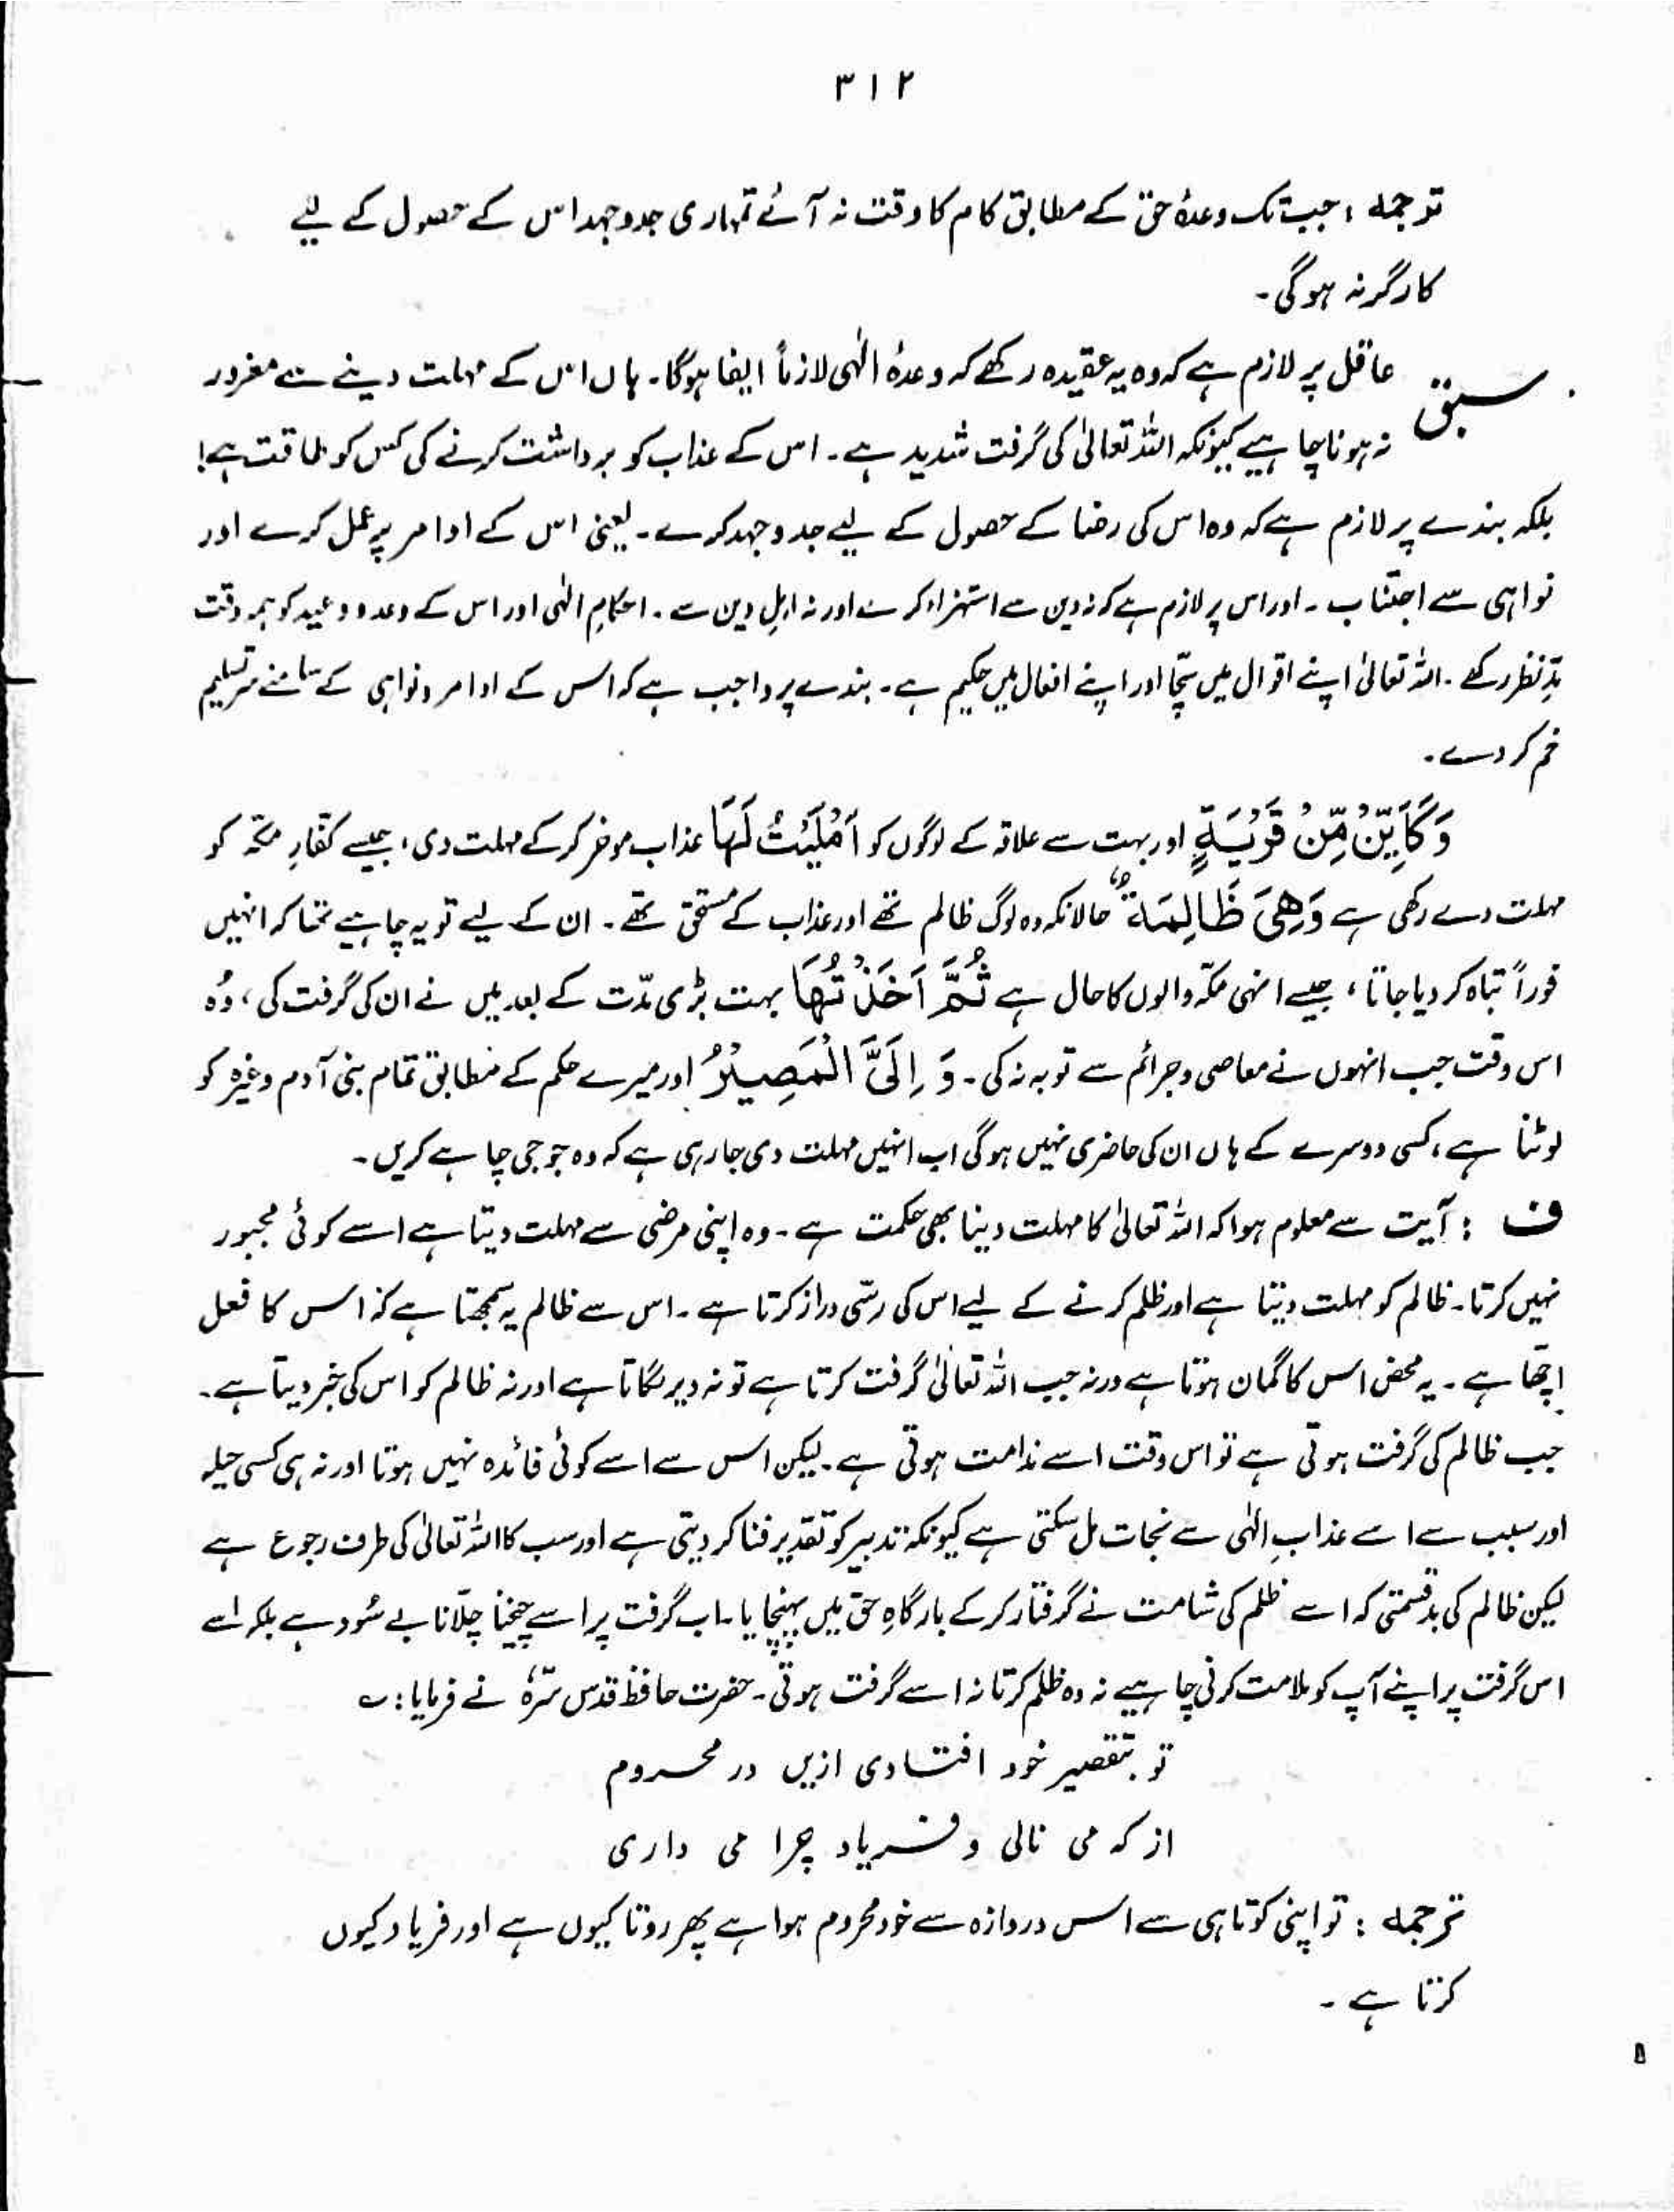 ۳۱۲
ترجمہ : جب تک وعدۂ حق کے مطابق کام کا وقت نہ آئے تمہاری جدوجہد اس کے حصول کے لیے
کارگر نہ ہوگی۔
سبق عاقل پر لازم ہے کہ وہ یہ عقیدہ رکھے کہ وعدۂ الٰہی لازماً ایفا ہوگا۔ ہاں اس کے مہلت دینے سے مغرور
نہ ہونا چاہیے کیونکہ اللہ تعالیٰ کی گرفت شدید ہے۔ اس کے عذاب کو برداشت کرنے کی کس کو طاقت ہے!
بلکہ بندے پر لازم ہے کہ وہ اس کی رضا کے حصول کے لیے جدوجہد کرے۔ یعنی اس کے اوامر پر عمل کرے اور
نواہی سے اجتناب۔ اور اس پر لازم ہے کہ نہ دین سے استہزاء کرے اور نہ اہلِ دین سے۔ احکامِ الٰہی اور اس کے وعدہ وعید کو ہمہ وقت
مدِّ نظر رکھے۔ اللہ تعالیٰ اپنے اقوال میں سچّا اور اپنے افعال میں حکیم ہے۔ بندے پر واجب ہے کہ اس کے اوامر ونواہی کے سامنے سرِ تسلیم
خم کر دے۔
وَكَاَيِّنْ مِّنْ قَرْيَةٍ اور بہت سے علاقہ کے لوگوں کو اَمْلَيْتُ لَهَا عذاب موخر کر کے مہلت دی، جیسے کفّارِ مکّہ کو
مہلت دے رکھی ہے وَهِىَ ظَالِمَةٌ حالانکہ وہ لوگ ظالم تھے اور عذاب کے مستحق تھے۔ ان کے لیے تو یہ چاہیے تھا کہ انہیں
فوراً تباہ کر دیا جاتا، جیسے انہی مکّہ والوں کا حال ہے ثُمَّ اَخَذْتُهَا بہت بڑی مدّت کے بعد میں نے ان کی گرفت کی، وُہ
اس وقت جب انہوں نے معاصی و جرائم سے توبہ نہ کی۔ وَ اِلَىَّ الْمَصِيْرُ اور میرے حکم کے مطابق تمام بنی آدم وغیرہ کو
لوٹنا ہے، کسی دوسرے کے ہاں ان کی حاضری نہیں ہوگی اب انہیں مہلت دی جا رہی ہے کہ وہ جو جی چاہے کریں۔
ف : آیت سے معلوم ہوا کہ اللہ تعالیٰ کا مہلت دینا بھی حکمت ہے۔ وہ اپنی مرضی سے مہلت دیتا ہے اسے کوئی مجبور
نہیں کرتا۔ ظالم کو مہلت دیتا ہے اور ظلم کرنے کے لیے اس کی رسّی دراز کرتا ہے۔ اس سے ظالم یہ سمجھتا ہے کہ اس کا فعل
اچھّا ہے۔ یہ محض اس کا گمان ہوتا ہے ورنہ جب اللہ تعالیٰ گرفت کرتا ہے تو نہ دیر لگاتا ہے اور نہ ظالم کو اس کی خبر دیتا ہے۔
جب ظالم کی گرفت ہوتی ہے تو اس وقت اسے ندامت ہوتی ہے۔ لیکن اس سے اسے کوئی فائدہ نہیں ہوتا اور نہ ہی کسی حیلہ
اور سبب سے اسے عذابِ الٰہی سے نجات مل سکتی ہے کیونکہ تدبیر کو تقدیر فنا کر دیتی ہے اور سب کا اللہ تعالیٰ کی طرف رجوع ہے
لیکن ظالم کی بدقسمتی کہ اسے ظلم کی شامت نے گرفتار کر کے بارگاہِ حق میں پہنچایا۔ اب گرفت پر اسے چیخنا چلّانا بے سُود ہے بلکہ اسے
اس گرفت پر اپنے آپ کو ملامت کرنی چاہیے نہ وہ ظلم کرتا نہ اسے گرفت ہوتی۔ حضرت حافظ قدس سرّہٗ نے فرمایا : ؎
تو بتقصیر خود افتادی ازیں در محروم
از کہ می نالی و فریاد چرا می داری
ترجمہ : تو اپنی کوتاہی سے اس دروازہ سے خود محروم ہوا ہے پھر روتا کیوں ہے اور فریاد کیوں
کرتا ہے۔